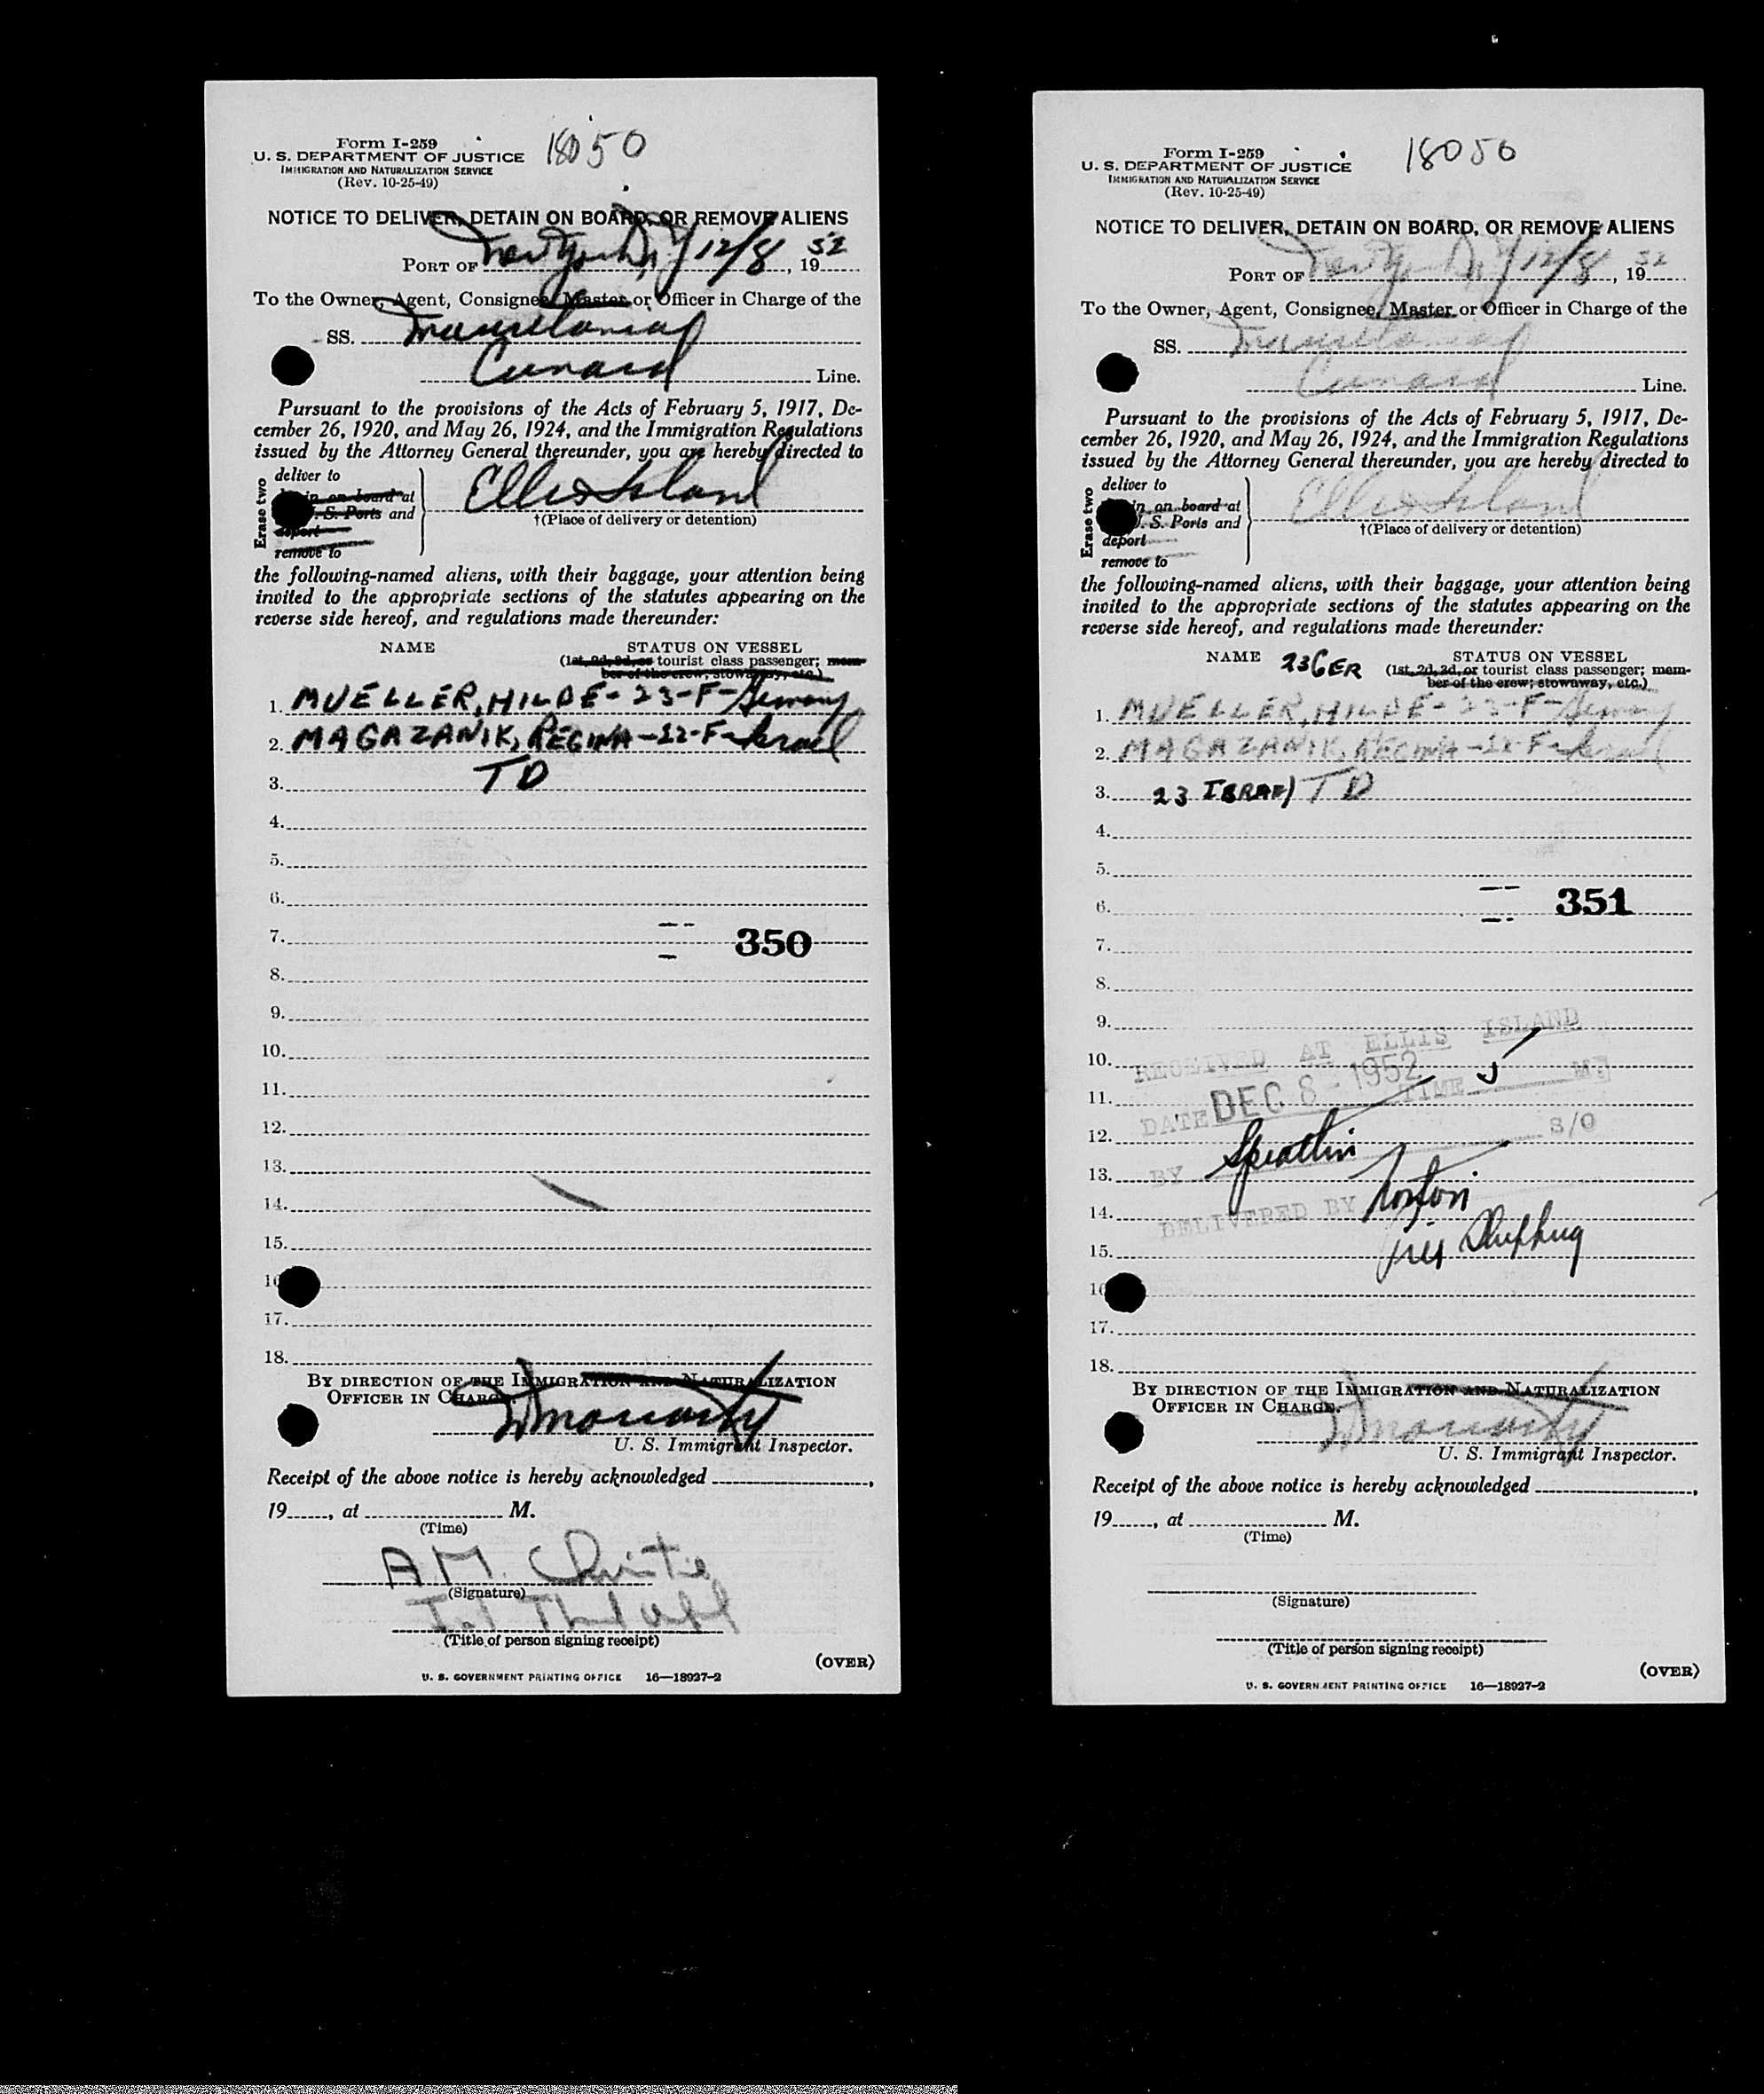 Form I-259
18050
U. S. DEPARTMENT OF JUSTICE
IMMIGRATION AND NATURALIZATION SERVICE
(Rev. 10-25-49)
NOTICE TO DELIVER, DETAIN ON BOARD, OR REMOVE ALIENS
PORT OF New York, N.Y 12/8, 1952
To the Owner, Agent, Consignee, Master or Officer in Charge of the
SS. Mauretania
Cunard Line.
Pursuant to the provisions of the Acts of February 5, 1917, De-
cember 26, 1920, and May 26, 1924, and the Immigration Regulations
issued by the Attorney General thereunder, you are hereby directed to
Erase two
deliver to
in on board at
S. Ports and
deport
remove to
Ellis Island
†(Place of delivery or detention)
the following-named aliens, with their baggage, your attention being
invited to the appropriate sections of the statutes appearing on the
reverse side hereof, and regulations made thereunder:
NAME STATUS ON VESSEL
(1st, 2d, 3d, or tourist class passenger; mem-
ber of the crew; stowaway, etc.)
1. MUELLER, HILDE - 23 - F - Germany
2. MAGAZANIK, REGINA - 22 - F - Israel
3. TD
4.
5.
6.
7. 350
8.
9.
10.
11.
12.
13.
14.
15.
16
17.
18.
BY DIRECTION OF THE IMMIGRATION AND NATURALIZATION
OFFICER IN CHARGE.
U. S. Immigrant Inspector.
Receipt of the above notice is hereby acknowledged ,
19 , at M.
(Time)
A.M. Christie
(Signature)
(Title of person signing receipt)
(OVER)
U. S. GOVERNMENT PRINTING OFFICE 16—18927-2
Form I-259
18050
U. S. DEPARTMENT OF JUSTICE
IMMIGRATION AND NATURALIZATION SERVICE
(Rev. 10-25-49)
NOTICE TO DELIVER, DETAIN ON BOARD, OR REMOVE ALIENS
PORT OF New York, N.Y 12/8, 1952
To the Owner, Agent, Consignee, Master or Officer in Charge of the
SS. Mauretania
Cunard Line.
Pursuant to the provisions of the Acts of February 5, 1917, De-
cember 26, 1920, and May 26, 1924, and the Immigration Regulations
issued by the Attorney General thereunder, you are hereby directed to
Erase two
deliver to
in on board at
S. Ports and
deport
remove to
Ellis Island
†(Place of delivery or detention)
the following-named aliens, with their baggage, your attention being
invited to the appropriate sections of the statutes appearing on the
reverse side hereof, and regulations made thereunder:
NAME 23 GER STATUS ON VESSEL
(1st, 2d, 3d, or tourist class passenger; mem-
ber of the crew; stowaway, etc.)
1. MUELLER, HILDE - 23 - F - Germany
2. MAGAZANIK, REGINA - 22 - F - Israel
3. 23 ISRAEL TD
4.
5.
6. 351
7.
8.
9.
10.
11.
12.
13.
14.
15.
16
17.
18.
RECEIVED AT ELLIS ISLAND
DATE DEC 8 - 1952 TIME M.
BY S/O
DELIVERED BY
BY DIRECTION OF THE IMMIGRATION AND NATURALIZATION
OFFICER IN CHARGE.
U. S. Immigrant Inspector.
Receipt of the above notice is hereby acknowledged ,
19 , at M.
(Time)
(Signature)
(Title of person signing receipt)
(OVER)
U. S. GOVERNMENT PRINTING OFFICE 16—18927-2